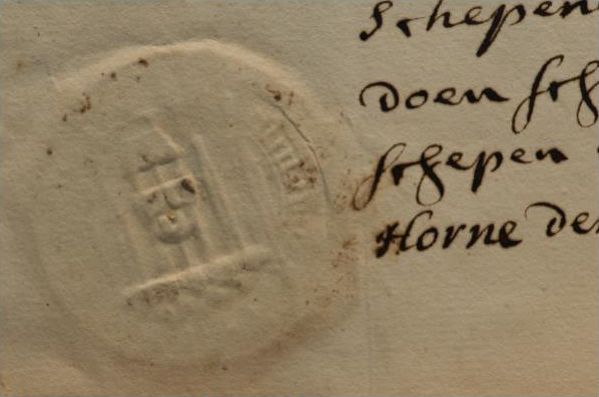 Schepen
doen sch
schepen
Horne de